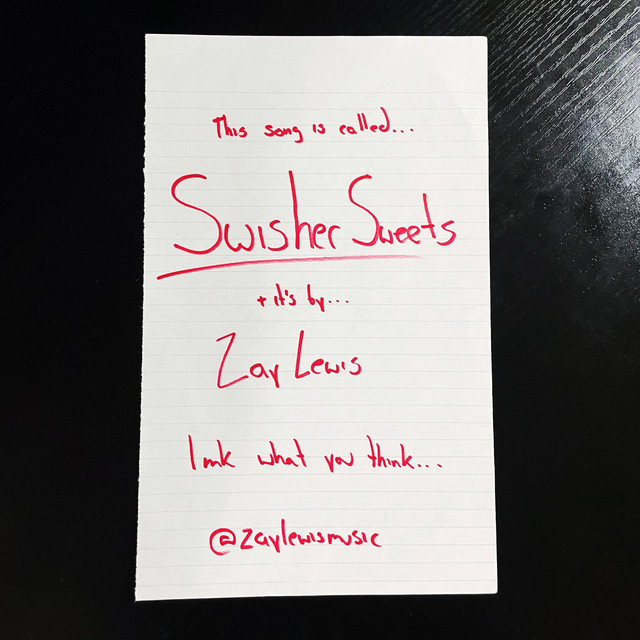 This song is called...
Swisher Sweets
+ it's by...
Zay Lewis
lmk what you think...
@zaylewismusic